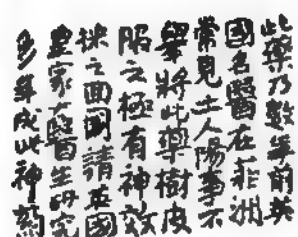 此藥乃數年前英
國名醫在菲洲
常見土人陽事不
舉將此樂樹皮
服之極有神效
後之回國請英國
皇家大醫生研究
多年成此神劑